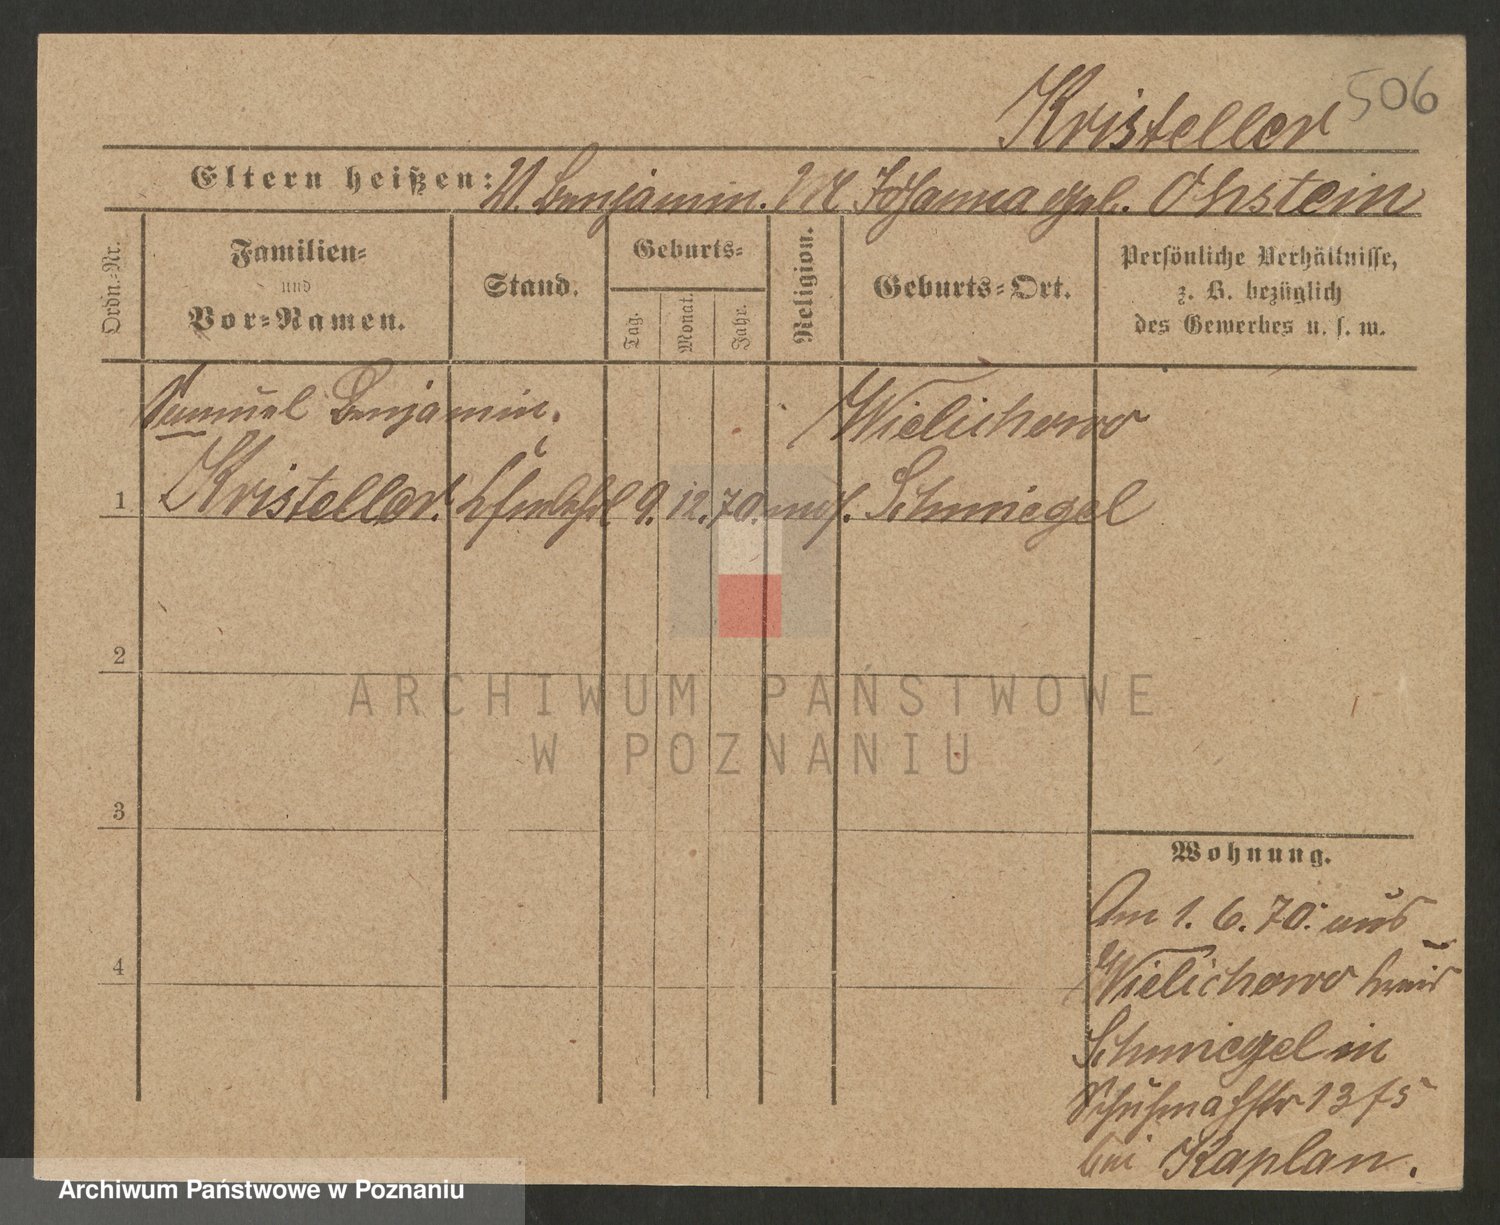 506
Kristeller
Eltern heißen: V. Benjamin. M Johanna geb. Ohstein
Ordn.-Nr.
Familien-
und
Vor-Namen.
Stand.
Geburts-
Tag.
Monat.
Jahr.
Religion.
Geburts-Ort.
Persönliche Verhältnisse,
z. B. bezüglich
des Gewerbes u. s. w.
Samuel Benjamin. Wielichowo
1 Kristeller. 9. 12. 70. mos. Schmiegel
2
3
4
Wohnung.
Am 1. 6. 70. aus
Wielichowo Kreis
Schmiegel in
Schuhmachstr 13 fs
bei Kaplan.
ARCHIWUM PAŃSTWOWE
W POZNANIU
Archiwum Państwowe w Poznaniu